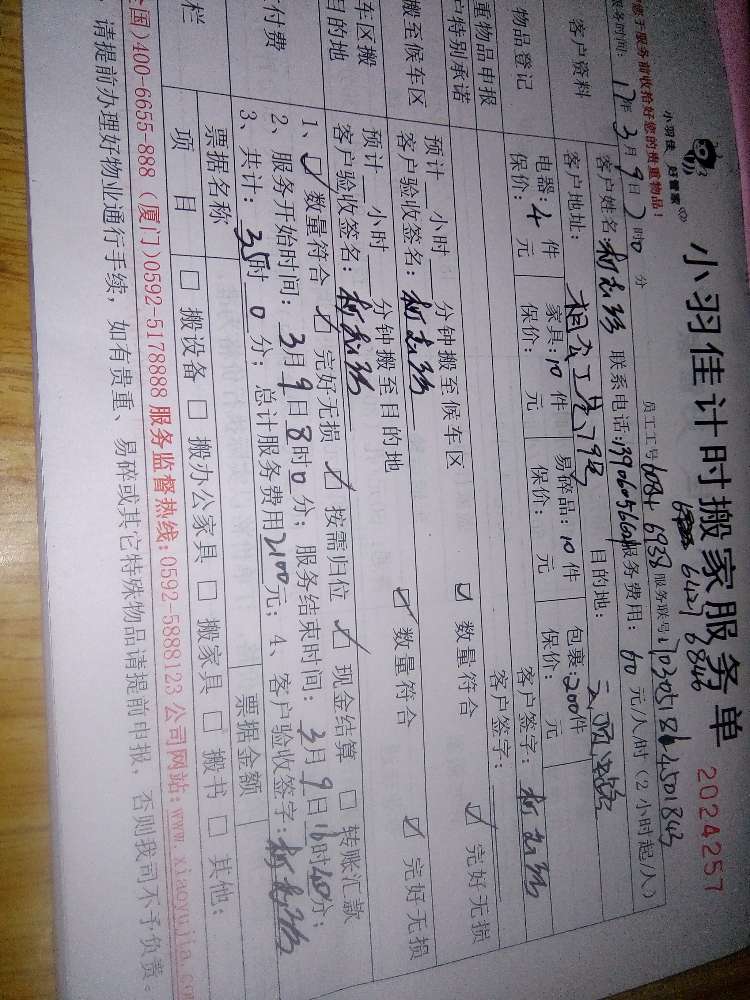 小羽佳 好管家
小羽佳计时搬家服务单 2024257
于服务前收拾好您的贵重物品!
员工工号 6084 6938 服务联号:
6421 6846
务时间: 17年3月9日7时0分
服务费用: 60元/人/时(2小时起/人)
客户资料 客户姓名: 联系电话:
客户地址: 目的地:
物品登记 电器:4件 家具:10件 易碎品:10件 包裹:200件
保价: 元 保价: 元 保价: 元 保价: 元
客户签字:
重物品申报
户特别承诺 客户签字:
搬至候车区 预计 小时 分钟搬至候车区 ☑数量符合 ☑完好无损
客户验收签名:
车区搬 预计 小时 分钟搬至目的地 ☑数量符合 ☑完好无损
目的地 客户验收签名:
付费 1、☑数量符合 ☑完好无损 ☑按需归位 ☑现金结算 □转账汇款
2、服务开始时间:3月9日8时0分;服务结束时间:3月9日16时40分;
3、共计:35时0分;总计服务费用2100元;4、客户验收签字:
栏 票据名称 票据金额
项目 □搬设备 □搬办公家具 □搬家具 □搬书 □其他:
全国)400-6655-888 (厦门)0592-5178888 服务监督热线:0592-5888123 公司网站:www.xiaoyujia.co
请提前办理好物业通行手续,如有贵重、易碎或其它特殊物品请提前申报,否则我司不予负责。